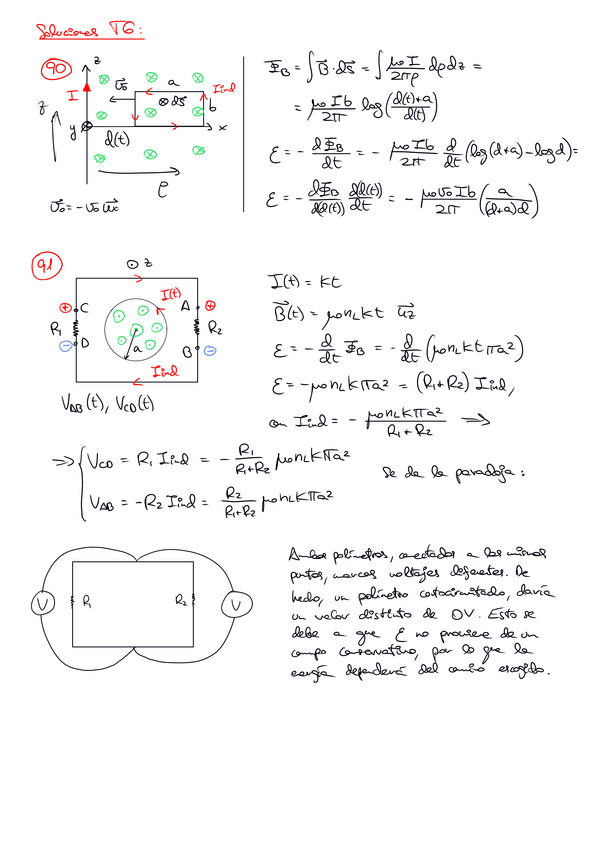 Soluciones T6:
90
z
I
v⃗₀
a
Iind
⊗ ds⃗
b
z
y
x
d(t)
ρ
v⃗₀ = - v₀ u⃗x
Φ_B = ∫ B⃗ · ds⃗ = ∫ μ₀I/2πρ dρdz =
= μ₀Ib/2π log(d(t)+a/d(t))
ε = - dΦ_B/dt = - μ₀Ib/2π d/dt (log(d+a) - log d) =
ε = - dΦ_B/dd(t) dd(t)/dt = - μ₀v₀Ib/2π (a/(d+a)d)
91
⊙ z
I(t)
+ C
A +
R₁
R₂
- D
B -
a
Iind
V_AB(t), V_CD(t)
I(t) = kt
B⃗(t) = μ₀n_L kt u⃗z
ε = - d/dt Φ_B = - d/dt (μ₀n_L kt πa²)
ε = -μ₀n_L kπa² = (R₁+R₂) Iind,
con Iind = - μ₀n_L kπa²/R₁+R₂ ⟹
⟹ { V_CD = R₁ Iind = - R₁/R₁+R₂ μ₀n_L kπa²
V_AB = -R₂ Iind = R₂/R₁+R₂ μ₀n_L kπa²
Se da la paradoja:
V
R₁
R₂
V
Ambos polímetros, conectados a los mismos
puntos, marcan voltajes diferentes. De
hecho, un polímetro cortocircuitado, daría
un valor distinto de 0V. Esto se
debe a que ε no proviene de un
campo conservativo, por lo que la
energía dependerá del camino escogido.